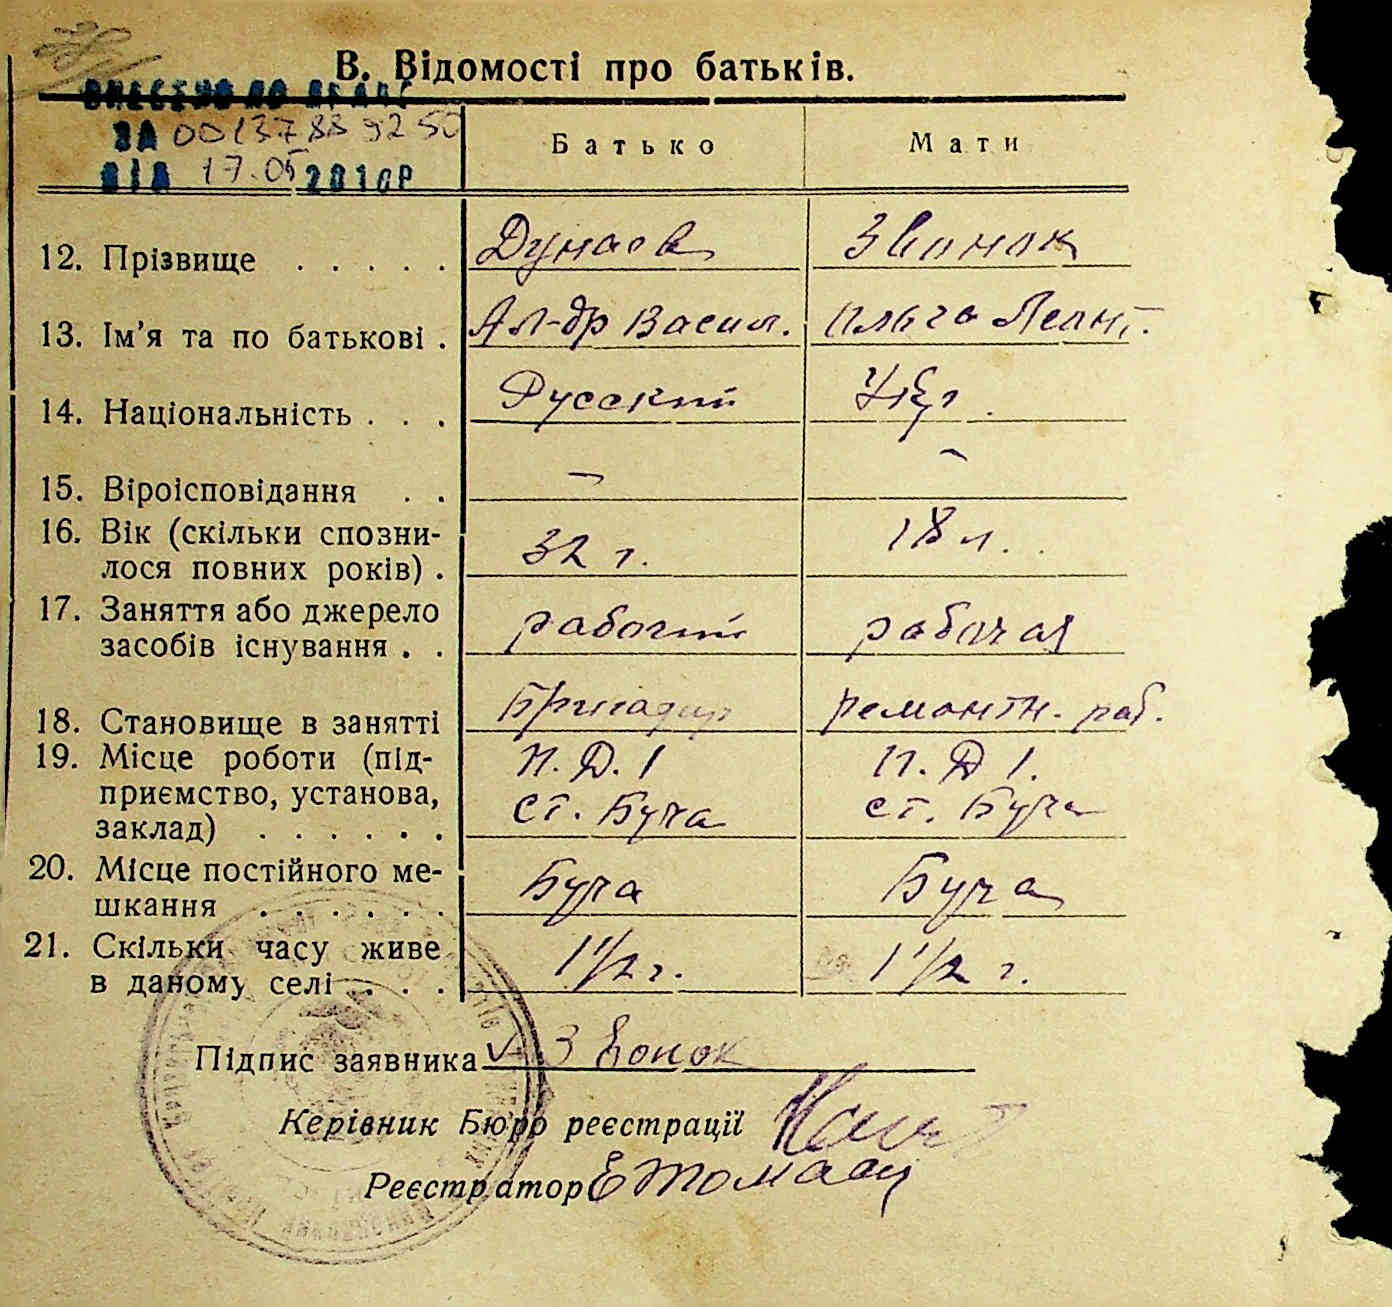 В. Відомості про батьків.
ВНЕСЕНО ДО ДРАЦС
ЗА 00137889250
ВІД 17.05 2016Р
Батько Мати
12. Прізвище . . . . . Дунаев Звонок
13. Ім'я та по батькові . Ал-др Васил. Ольга Леонт.
14. Національність . . . Русский Укр.
15. Віроісповідання . . – –
16. Вік (скільки спозни-
лося повних років) . 32 г. 18 л.
17. Заняття або джерело
засобів існування . . рабочий рабочая
18. Становище в занятті Бригадир ремонтн. раб.
19. Місце роботи (під-
приємство, установа, П.Д.1 П.Д 1.
заклад) . . . . . . ст. Буча ст. Буча
20. Місце постійного ме-
шкання . . . . . . Буча Буча
21. Скільки часу живе
в даному селі . . . 1 1/2 г. 1 1/2 г.
Підпис заявника V Звонок
Керівник Бюро реєстрації
Реєстратор